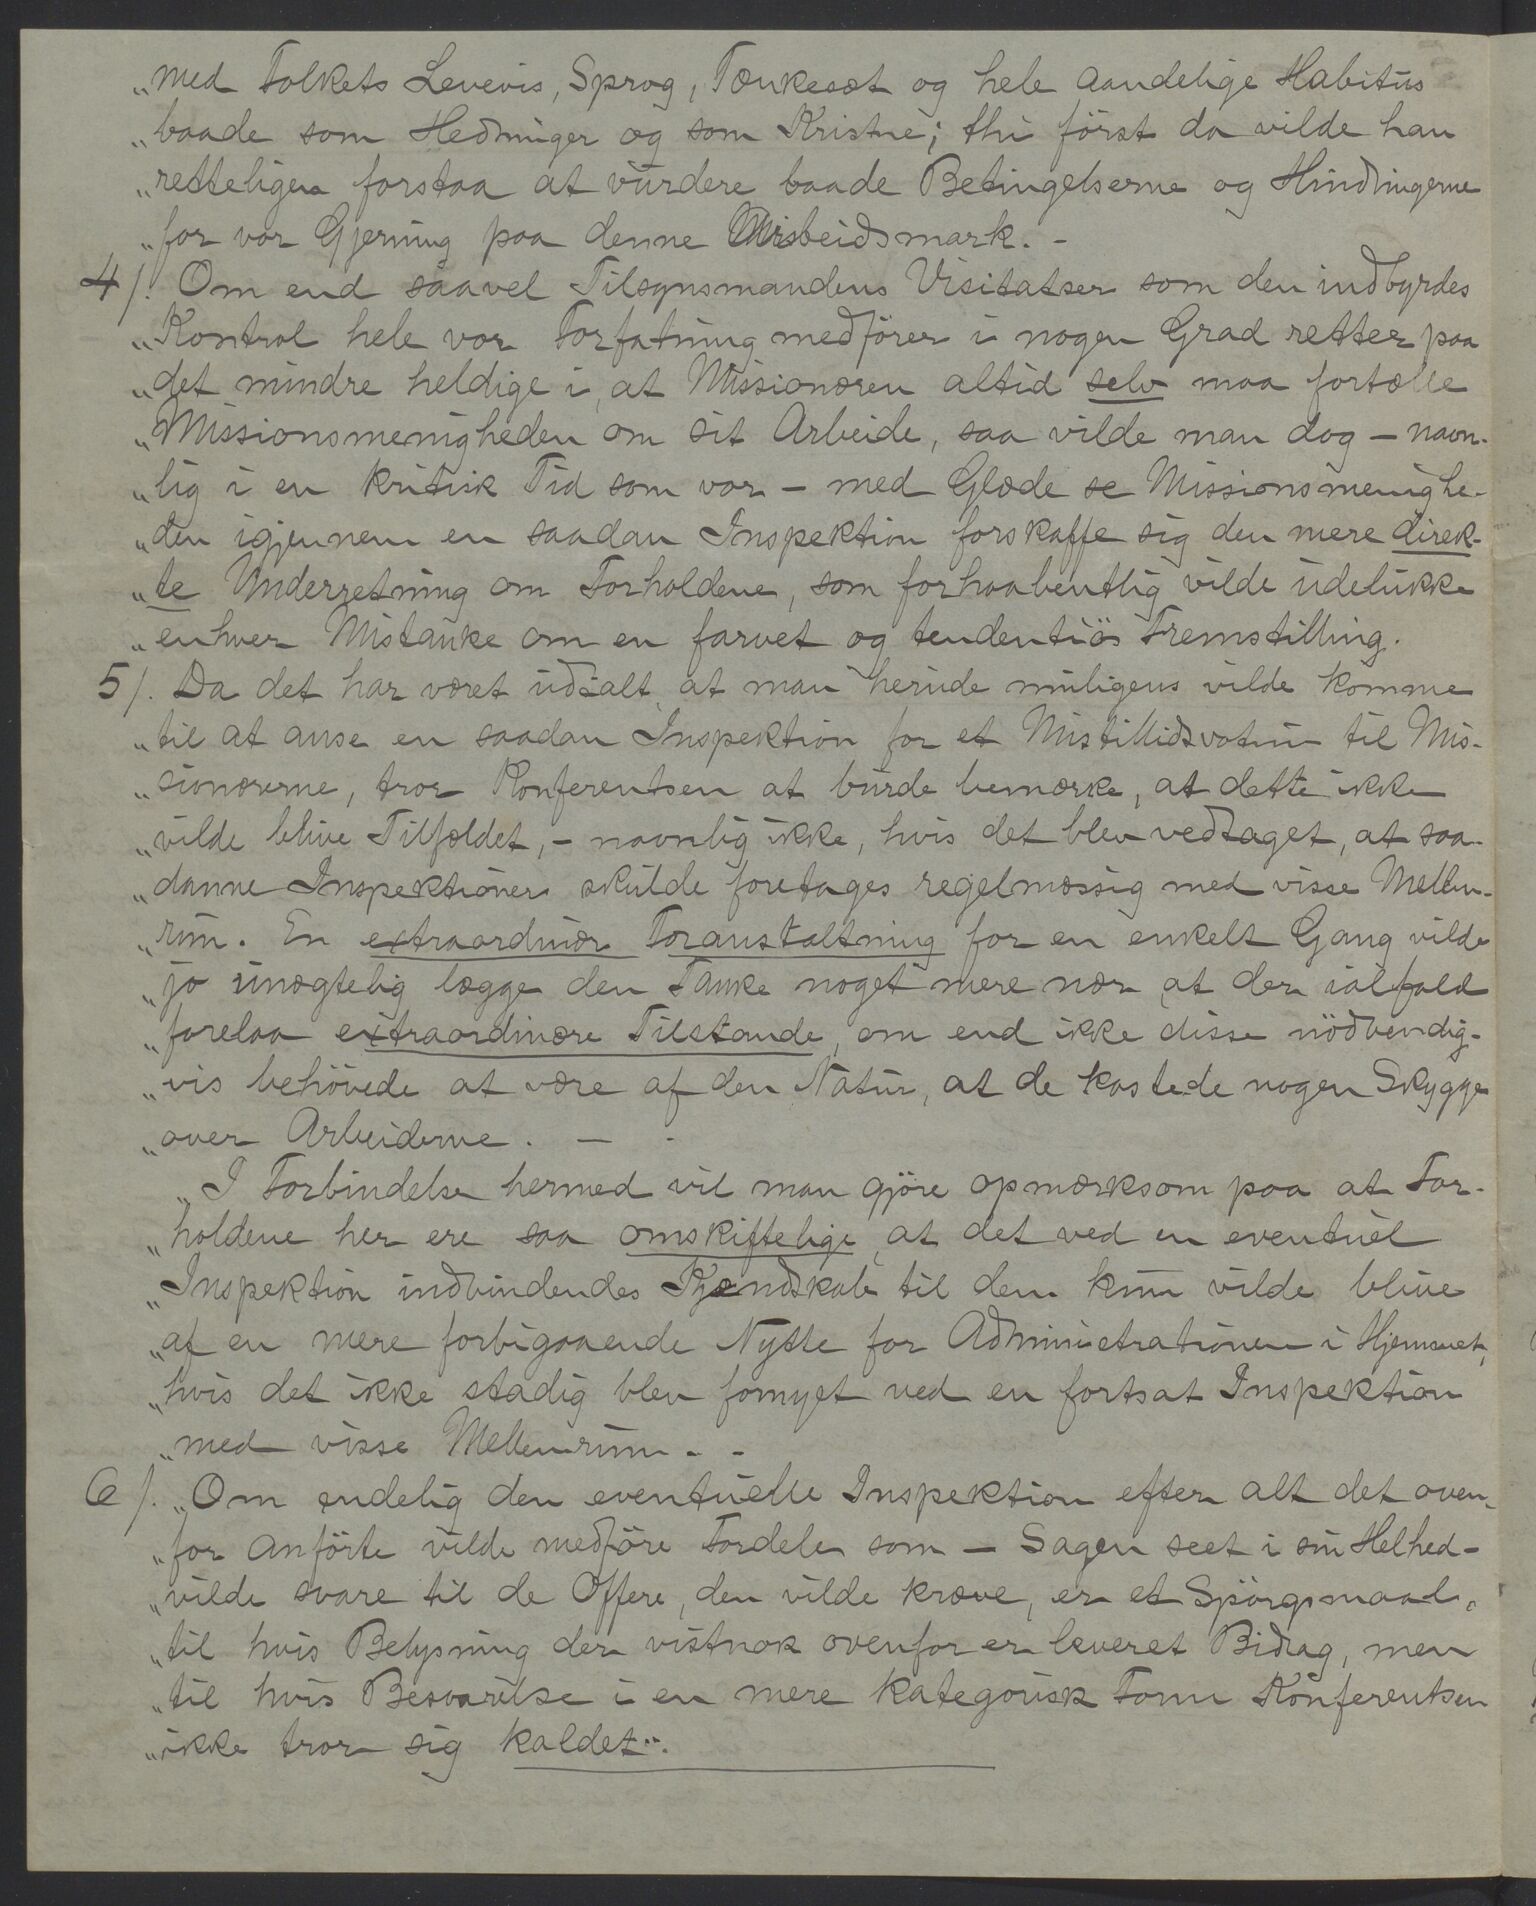 „med Folkets Levevis, Sprog, Tænkesæt og hele aandelige Habitus
„baade som Hedninger og som Kristne; thi først da vilde han
„retteligen forstaa at vurdere baade Betingelserne og Hindringerne
„for vor Gjerning paa denne Arbeidsmark. -
4/. Om end saavel Tilsynsmandens Visitatser som den indbyrdes
„Kontrol hele vor Forfatning medfører i nogen Grad retter paa
„det mindre heldige i, at Missionæren altid selv maa fortælle
„Missionsmenigheden om sit Arbeide, saa vilde man dog – navn-
„lig i en kritisk Tid som vor – med Glæde se Missionsmenighe-
„den igjennem en saadan Inspektion forskaffe sig den mere direk-
„te Underretning om Forholdene, som forhaabentlig vilde udelukke
„enhver Mistanke om en farvet og tendentiøs Fremstilling.
5/. Da det har været udtalt, at man herude muligens vilde komme
„til at anse en saadan Inspektion for et Mistillidsvotum til Mis-
„sionærerne, tror Konferentsen at burde bemærke, at dette ikke
„vilde blive Tilfældet, – navnlig ikke, hvis det blev vedtaget, at saa-
„danne Inspektioner skulde foretages regelmæssig med visse Mellem-
„rum. En extraordinær Foranstaltning for en enkelt Gang vilde
„jo unægtelig lægge den Tanke noget mere nær at der ialfald
„forelaa extraordinære Tilstande, om end ikke disse nødvendig-
„vis behøvede at være af den Natur, at de kastede nogen Skygge
„over Arbeiderne. — -
„I Forbindelse hermed vil man gjøre opmærksom paa at For-
„holdene her ere saa omskiftelige, at det ved en eventuel
„Inspektion indvindendes Kjendskab til dem kun vilde blive
„af en mere forbigaaende Nytte for Administrationen i Hjemmet,
„hvis det ikke stadig blev fornyet ved en fortsat Inspektion
„med visse Mellemrum. -
6/. „Om endelig den eventuelle Inspektion efter alt det oven-
„for anførte vilde medføre Fordele som – Sagen seet i sin Helhed –
„vilde svare til de Offere, den vilde kræve, er et Spørgsmaal,
„til hvis Belysning der vistnok ovenfor er leveret Bidrag, men
„til hvis Besvarelse i en mere kategorisk Form Konferentsen
„ikke tror sig kaldet".